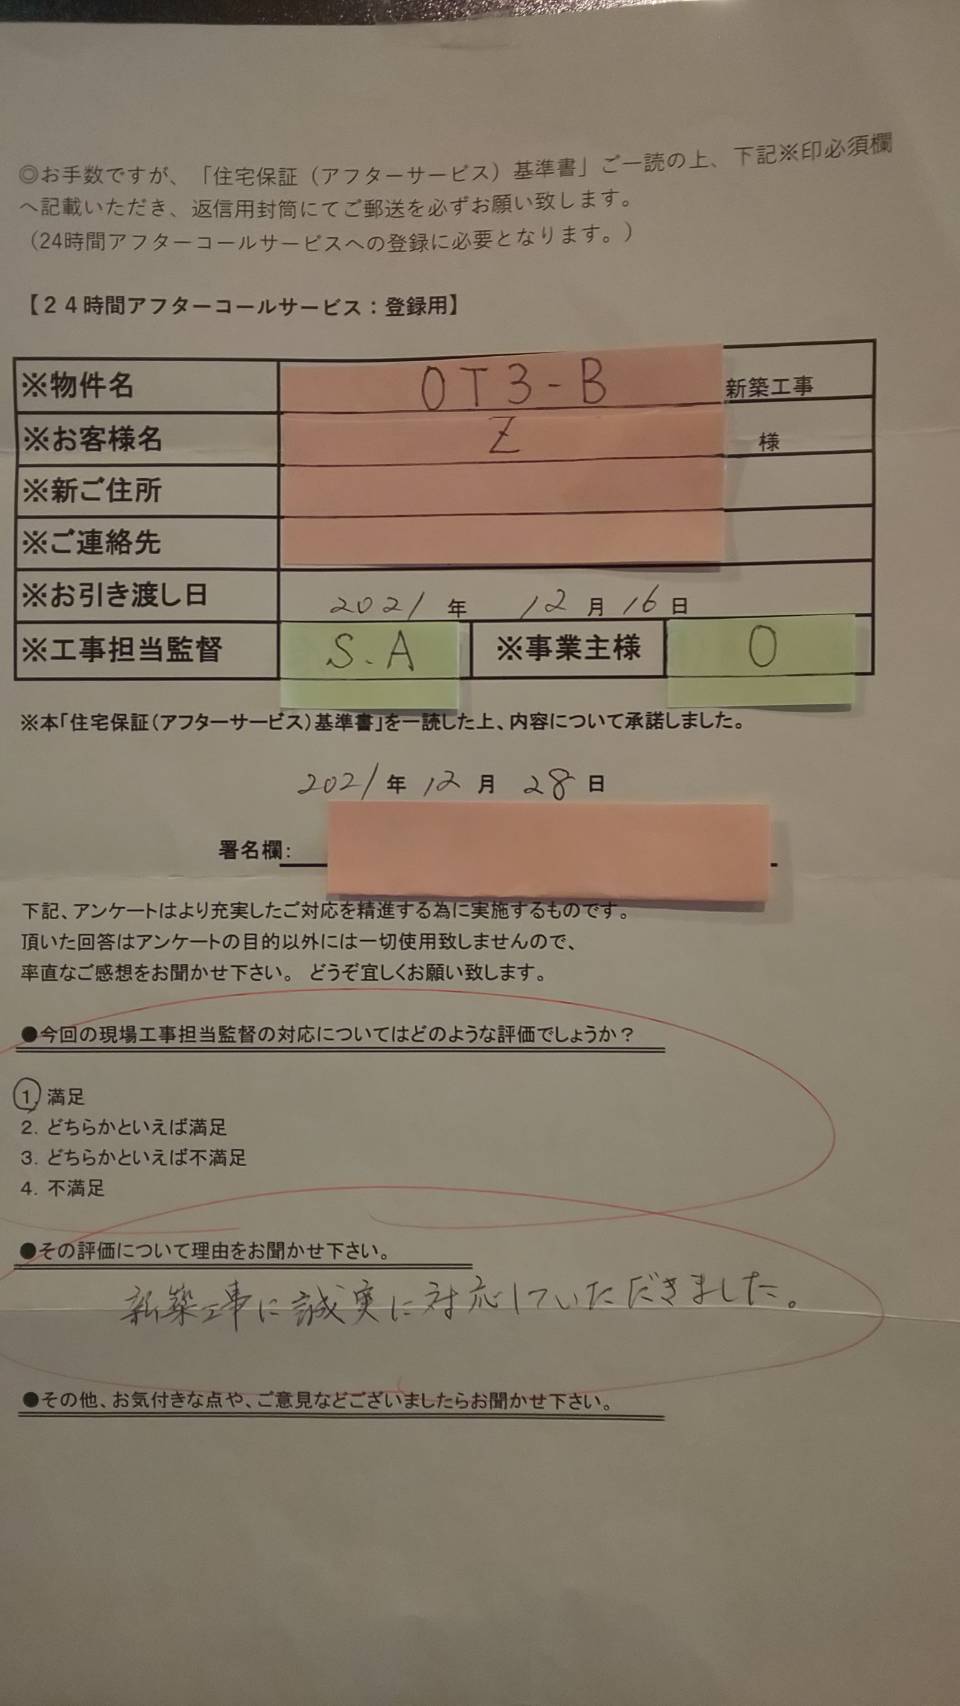 ◎お手数ですが、「住宅保証（アフターサービス）基準書」ご一読の上、下記※印必須欄
へ記載いただき、返信用封筒にてご郵送を必ずお願い致します。
（24時間アフターコールサービスへの登録に必要となります。）
【２４時間アフターコールサービス：登録用】
※物件名 OT3-B 新築工事
※お客様名 Z 様
※新ご住所
※ご連絡先
※お引き渡し日 2021 年 12 月 16 日
※工事担当監督 S.A ※事業主様 O
※本「住宅保証（アフターサービス）基準書」を一読した上、内容について承諾しました。
2021 年 12 月 28 日
署名欄：
下記、アンケートはより充実したご対応を精進する為に実施するものです。
頂いた回答はアンケートの目的以外には一切使用致しませんので、
率直なご感想をお聞かせ下さい。 どうぞ宜しくお願い致します。
●今回の現場工事担当監督の対応についてはどのような評価でしょうか？
1. 満足
2. どちらかといえば満足
3. どちらかといえば不満足
4. 不満足
●その評価について理由をお聞かせ下さい。
新築工事に誠実に対応していただきました。
●その他、お気付きな点や、ご意見などございましたらお聞かせ下さい。